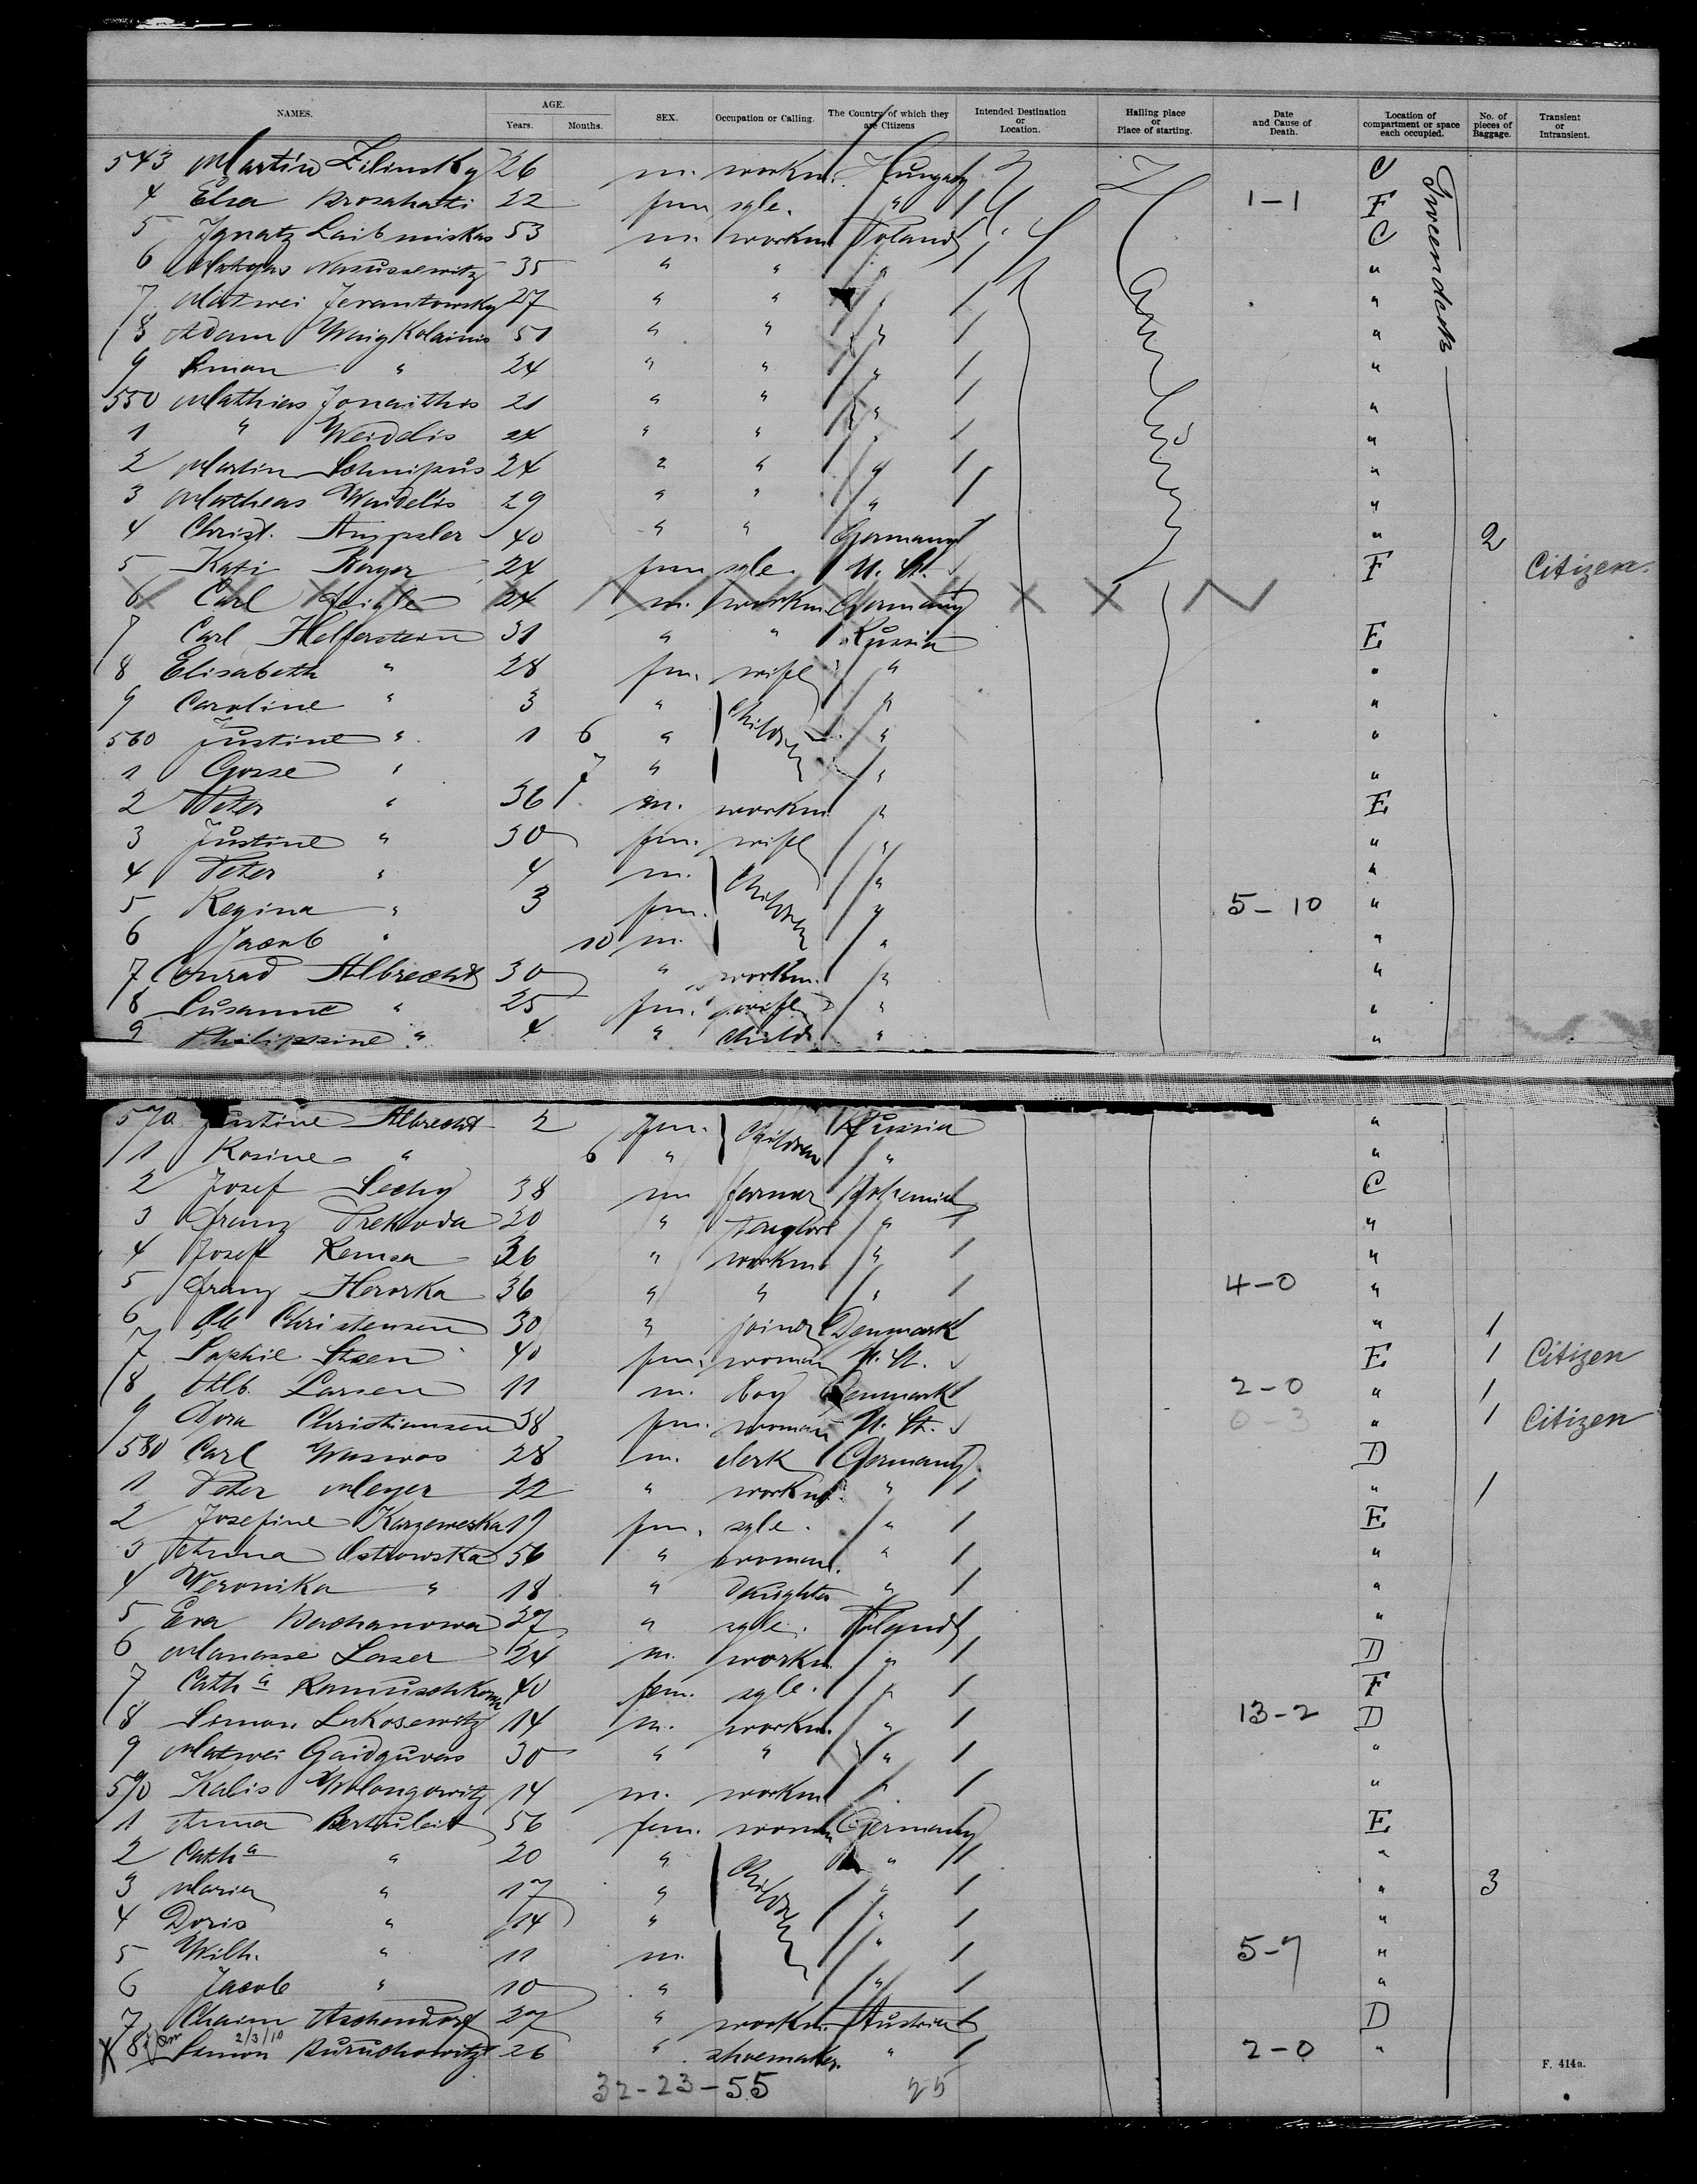 NAMES. AGE. Years. Months. SEX. Occupation or Calling. The Country of which they are Citizens Intended Destination or Location. Hailing place or Place of starting. Date and Cause of Death. Location of compartment or space each occupied. No. of pieces of Baggage. Transient or Intransient.
543 Martin Zilinsky 26 m. workm. Hungary C Tweendeck
4 Elsa 22 fm sgle. " 1-1 F
5 Ignatz Laibmiskas 53 m. workm Poland C
6 35 " " " "
7 Matwei Jerantowsky 27 " " " "
8 Adam 51 " " " "
9 Simon " 24 " " " "
550 Mathias Jonaithis 21 " " " "
1 " Weidelis 24 " " " "
2 Martin Schnipus 24 " " " "
3 Matheas Waidelis 29 " " " "
4 Christ. 40 " " Germany " 2
5 Kati Berger 24 fm sgle. U. St. F Citizen.
6 Carl Feigle 24 m. workm Germany
7 Carl Helferstein 31 " " Russia E
8 Elisabeth " 28 fm. wife " "
9 Caroline " 3 " Children " "
560 Justine " 1 6 " " "
1 " 7 " " "
2 Peter " 36 m. workm " E
3 Justine " 30 fm. wife " "
4 Peter " 4 m. Children " "
5 Regina " 3 fm. " 5-10 "
6 Jacob " 10 m. " "
7 Conrad Albrecht 30 " workm. " "
8 Susanne " 25 fm. wife " "
9 Philippine " 4 " child " "
570 Justine Albrecht 2 fm. Children Russia "
1 Rosine " 6 " " "
2 Josef Sechy 38 m farmer Bohemia C
3 Franz Prekoda 20 " " "
4 Josef Remsa 26 " workm " "
5 Franz Hororka 36 " " " 4-0 "
6 Ole Christensen 30 " joiner Denmark " 1
7 Sophie Steen 40 fm. woman U. St. E 1 Citizen
8 Alb. Larsen 11 m. boy Denmark 2-0 " 1
9 Dora Christiansen 38 fm. woman U. St. 0-3 " 1 Citizen
580 Carl Waswos 28 m. clerk Germany D
1 Peter Meyer 22 " workm " " 1
2 Josefine Karzeweska 19 fm. sgle. " E
3 Anna Ostrowska 56 " woman. " "
4 Weronika " 18 " daughter " "
5 Eva 27 " sgle. Poland "
6 Manasse Laser 24 m. workm " D
7 Cath a 40 fem. sgle. " F
8 Simon Lukosewitz 14 m. workm. " 13-2 D
9 Matwei Gaidguvas 30 " " " "
590 Kalis Wolongowitz 14 m. workm " "
1 Anna Bertuleit 56 fem. woman Germany E
2 Cath a " 20 " Children " "
3 Maria " 17 " " " 3
4 Doris " 14 " " "
5 Wilh. " 11 m. " 5-7 "
6 Jacob " 10 " " "
7 Chaim Aschendorf 27 " workm. Austria D
X 8 2/3/10 Simon 26 " shoemaker. " 2-0 "
32-23-55 25
F. 414a.